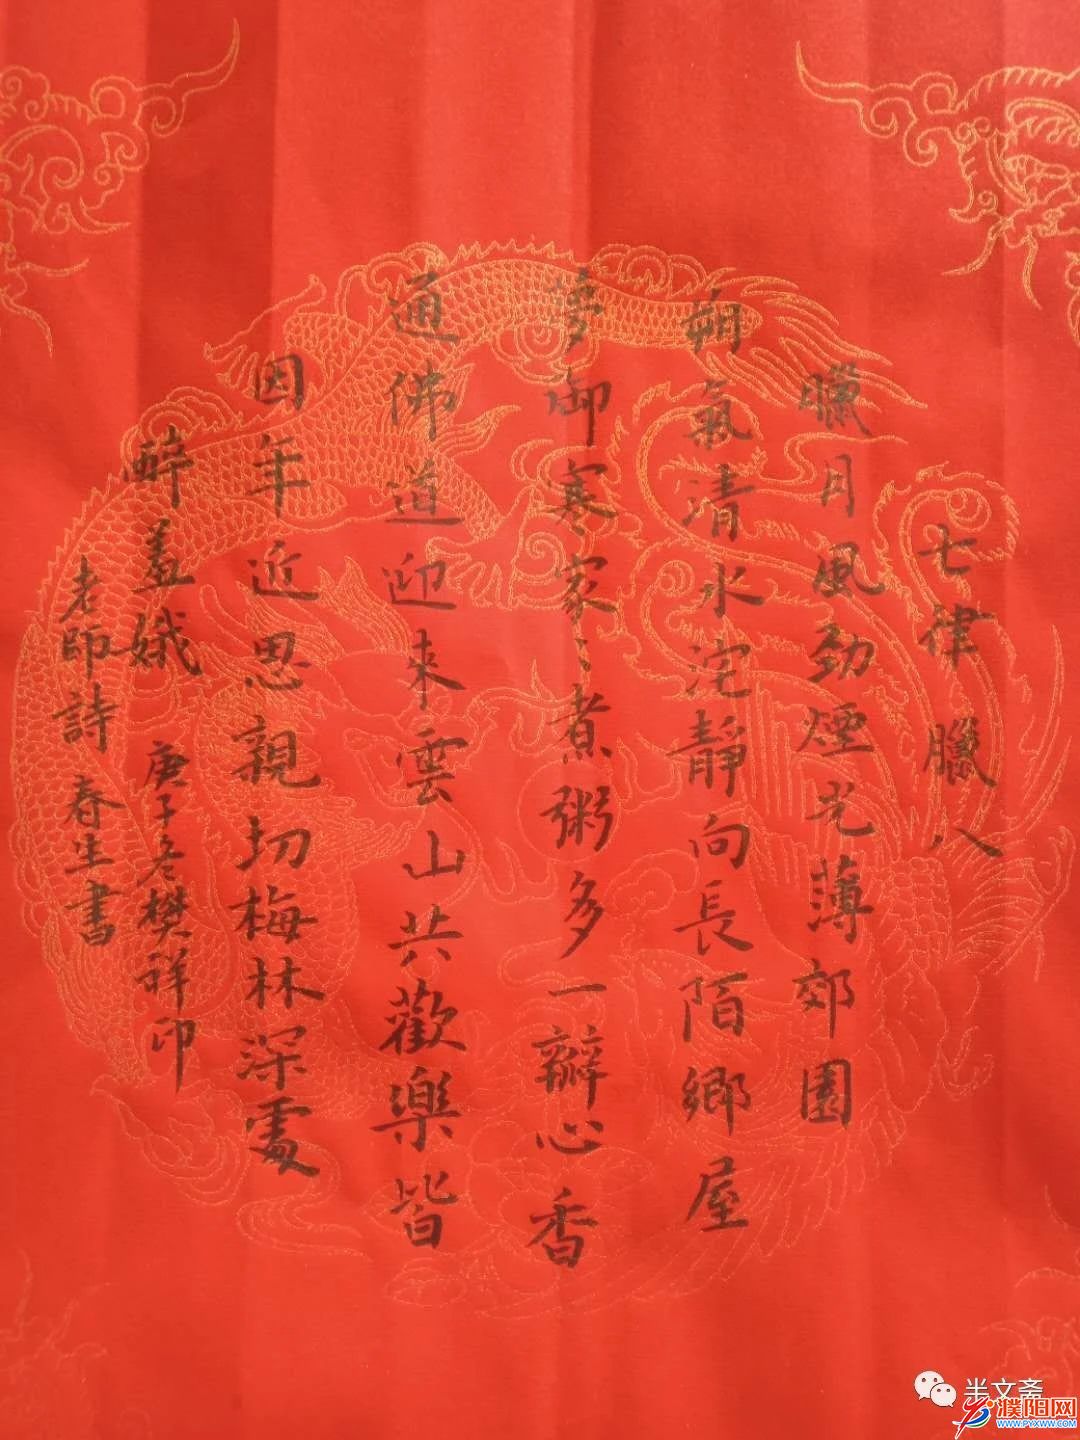 七律 臘八
臘月風勁煙光薄郊園
朔氣清水沱靜向長陌鄉屋
夢御寒家〻煮粥多一辦心香
通佛道迎来雲山共歡樂皆
因年近思親切梅林深處
醉羞娥 庚子冬樊祥印
老師詩 春生書
半文斋
濮阳网
WWW.PYXWW.COM